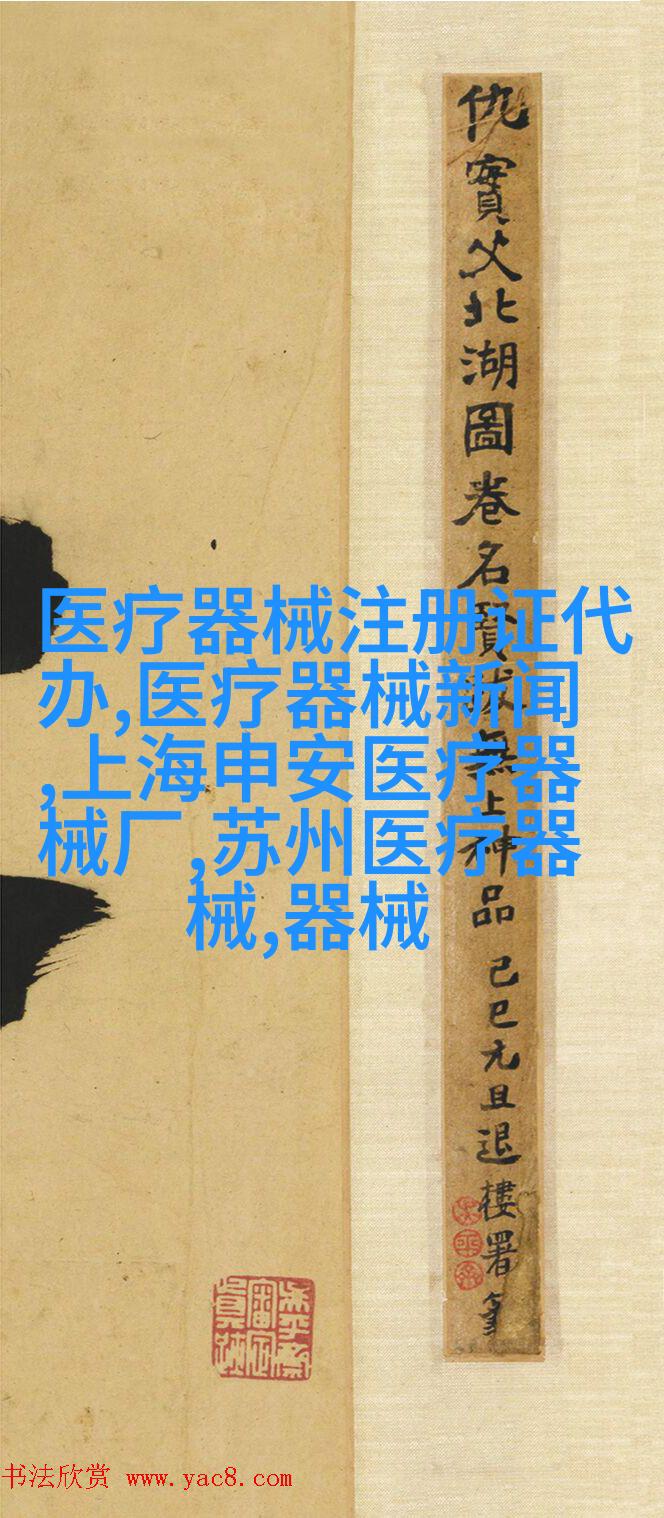 仇實父北湖圖卷名賢無上神品
己巳元旦退樓署
吳平齋
吳平齋審定真跡
医疗器械注册证代
办,医疗器械新闻
,上海申安医疗器
械厂,苏州医疗器
械,器械
书法欣赏 www.yac8.com